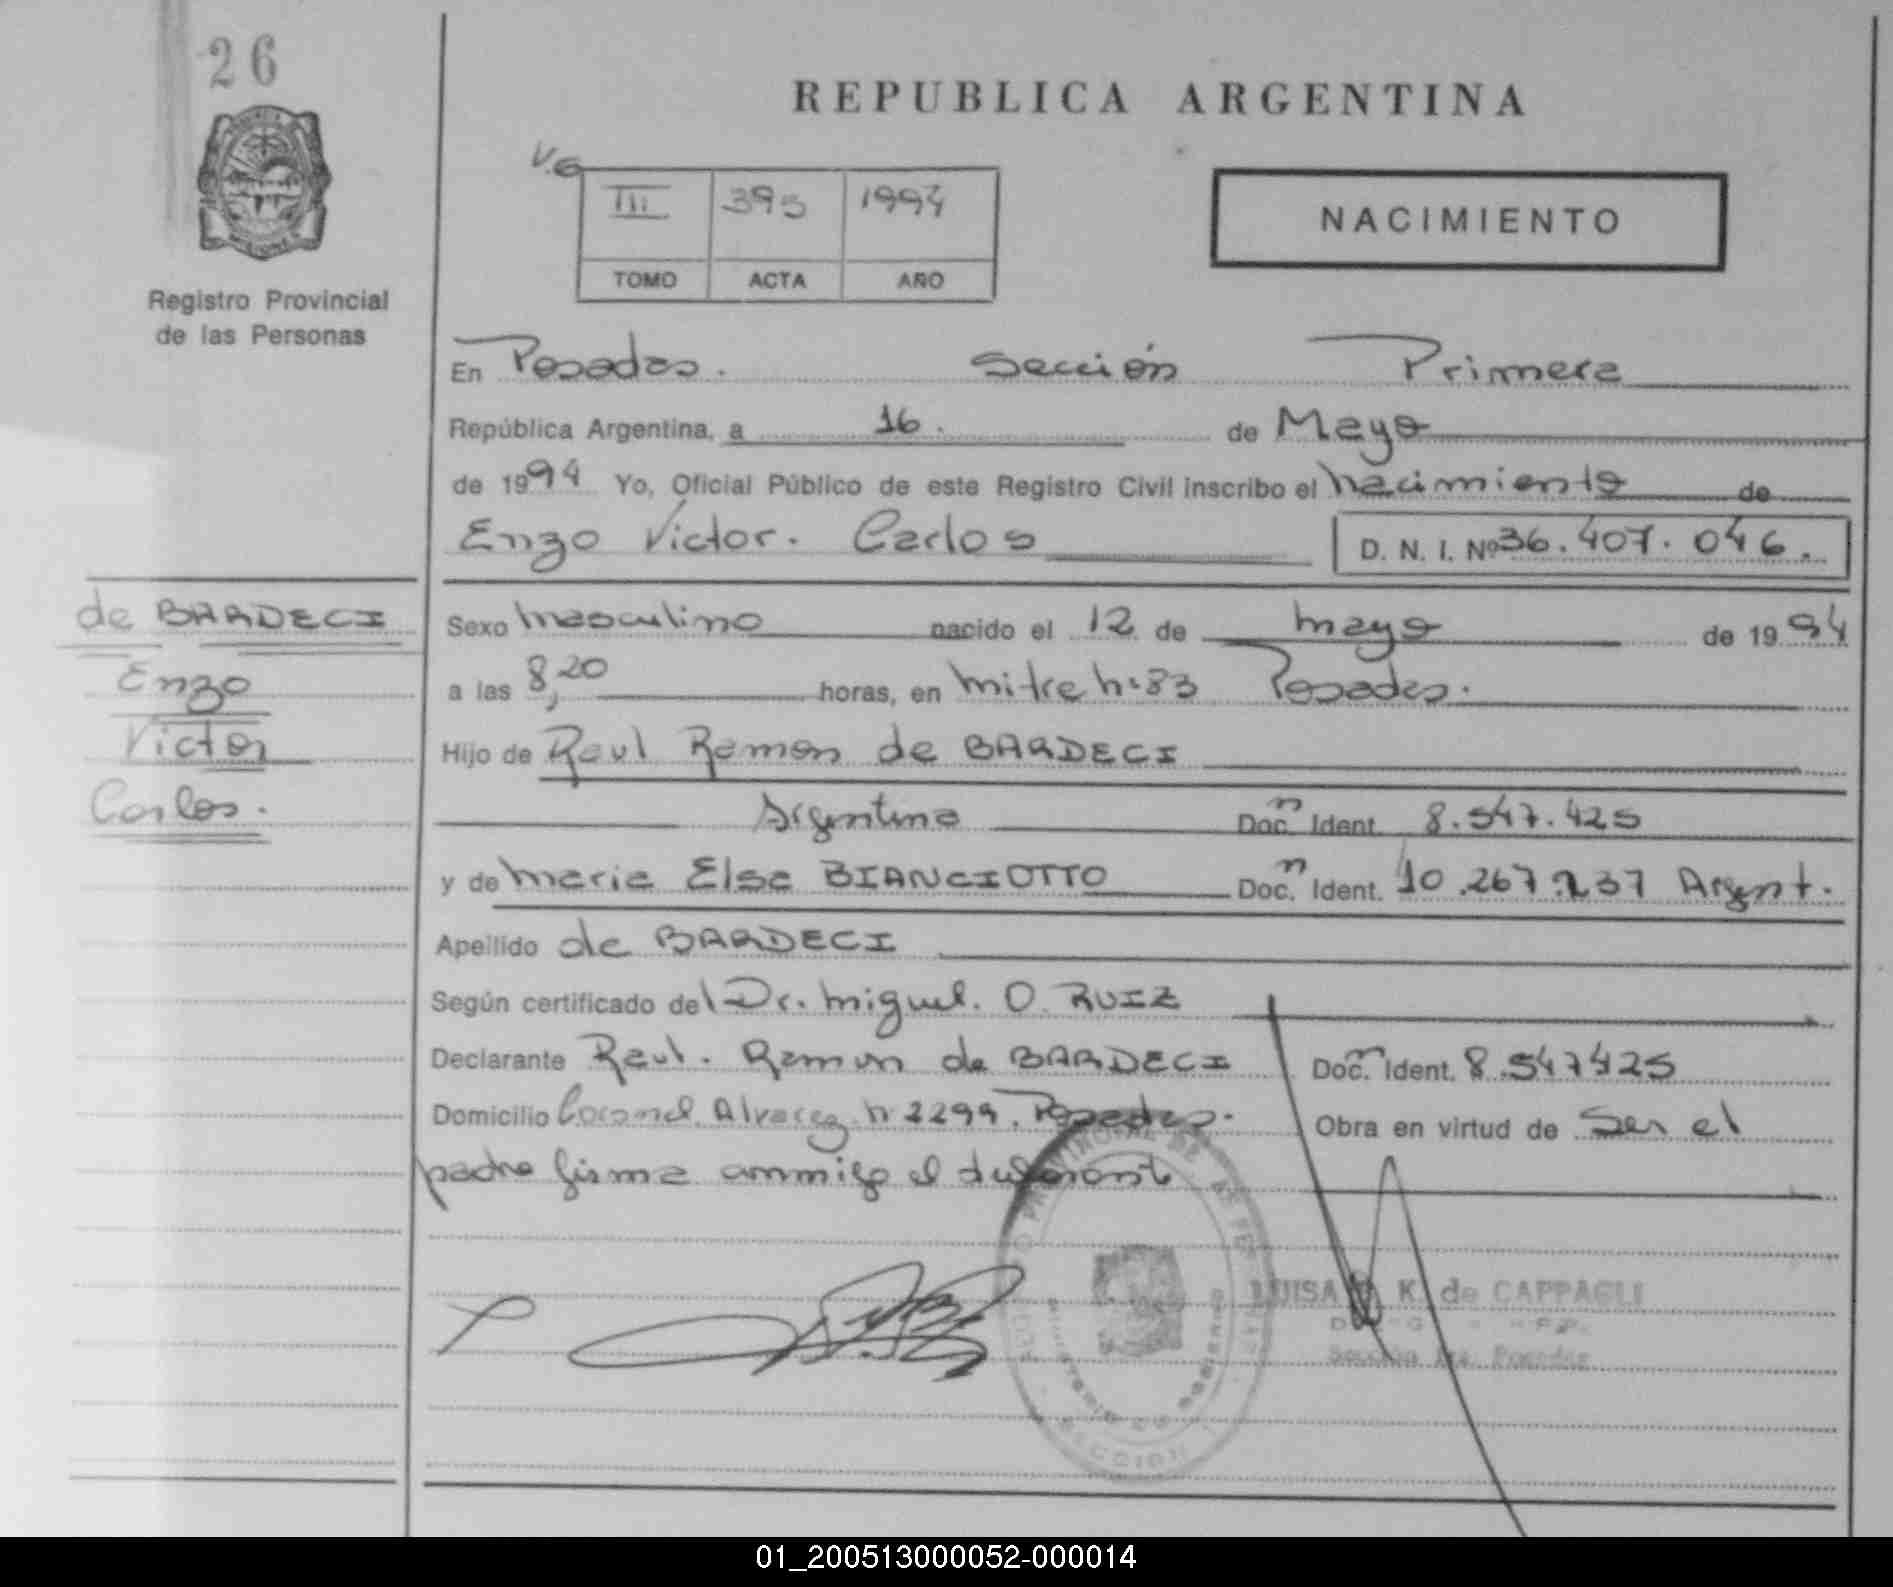 26
REPUBLICA ARGENTINA
V.G
III 395 1994
TOMO ACTA AÑO
NACIMIENTO
Registro Provincial
de las Personas
En Posadas. Sección Primera
República Argentina, a 16. de Mayo
de 1994 Yo, Oficial Público de este Registro Civil inscribo el nacimiento de
Enzo Victor. Carlos D. N. I. Nº 36.407.046.
de BARDECI
Enzo
Victor
Carlos.
Sexo masculino nacido el 12 de mayo de 1994
a las 8,20 horas, en mitre nº 83 Posadas.
Hijo de Raul Ramon de BARDECI
Argentino Doc.n Ident. 8.547.425
y de maria Elsa BIANCIOTTO Doc.n Ident. 10.267.237 Argent.
Apellido de BARDECI
Según certificado del Dr. miguel. O. RUIZ
Declarante Raul. Ramon de BARDECI Doc.n Ident. 8.547425
Domicilio Coronel. Alvarez n 2299. Posadas. Obra en virtud de Ser el
padre firma conmigo el
LUISA K. de CAPPAGLI
Sección 1ra. Posadas
SECCION 1
01_200513000052-000014